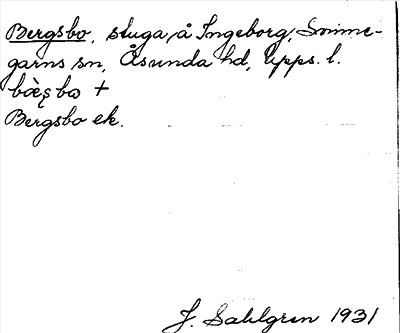 Bergsbo, stuga, å Ingeborg, Svinne-
garns sn, Åsunda hd, Upps. l.
bæ̀ʂbo +
Bergsbo ek.
J. Sahlgren 1931